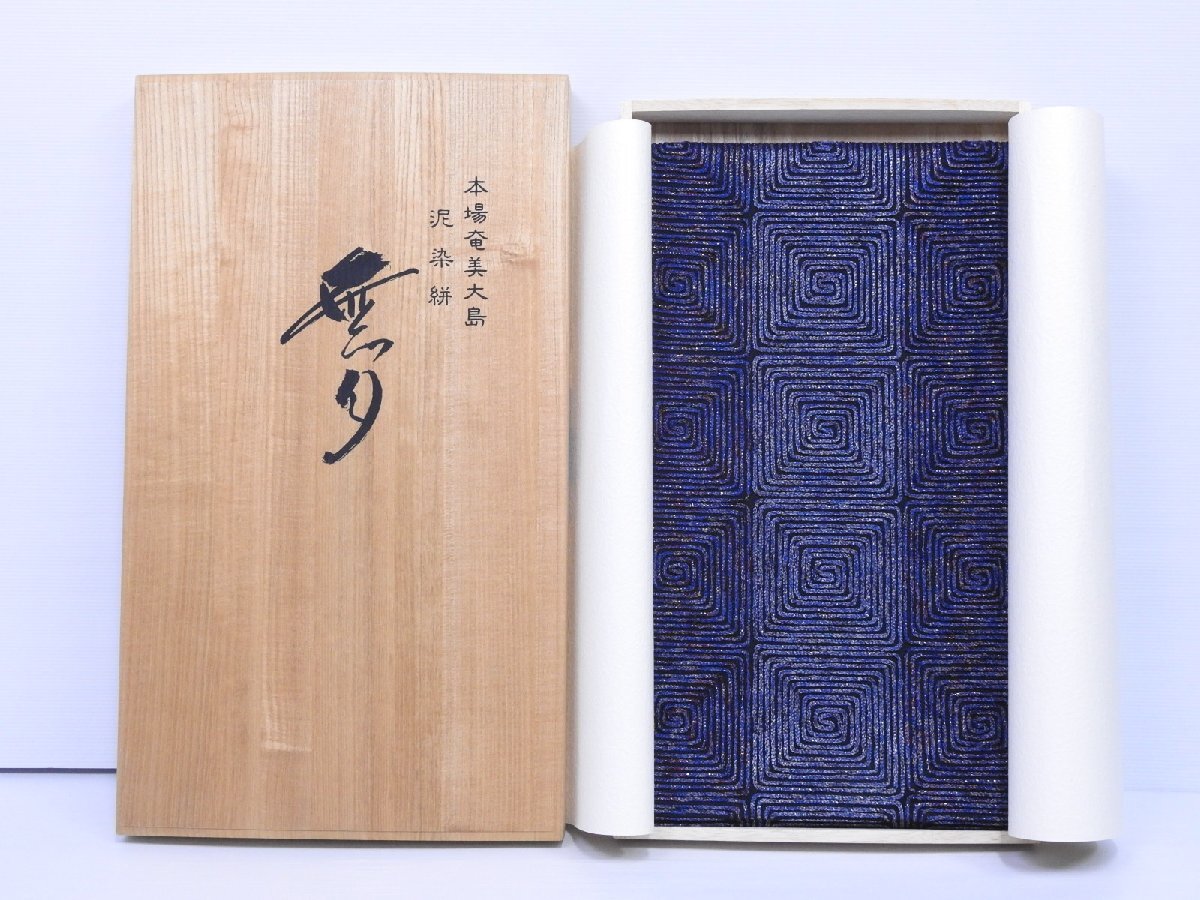 本場奄美大島
泥染絣